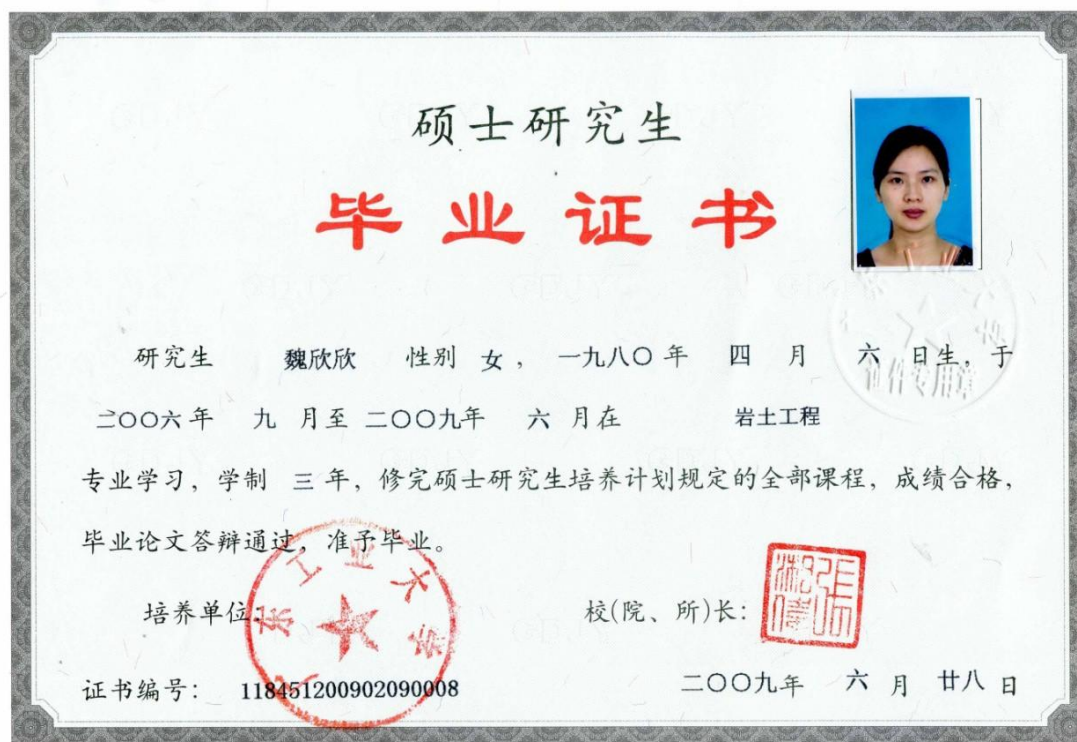 硕士研究生
毕业证书
研究生 魏欣欣 性别 女，一九八〇年 四 月 六 日生，于
二〇〇六年 九 月至 二〇〇九年 六 月在 岩土工程
专业学习，学制 三 年，修完硕士研究生培养计划规定的全部课程，成绩合格，
毕业论文答辩通过，准予毕业。
培养单位：
广东工业大学
校(院、所)长：
证书编号： 118451200902090008
二〇〇九年 六 月 廿八 日
证件专用章